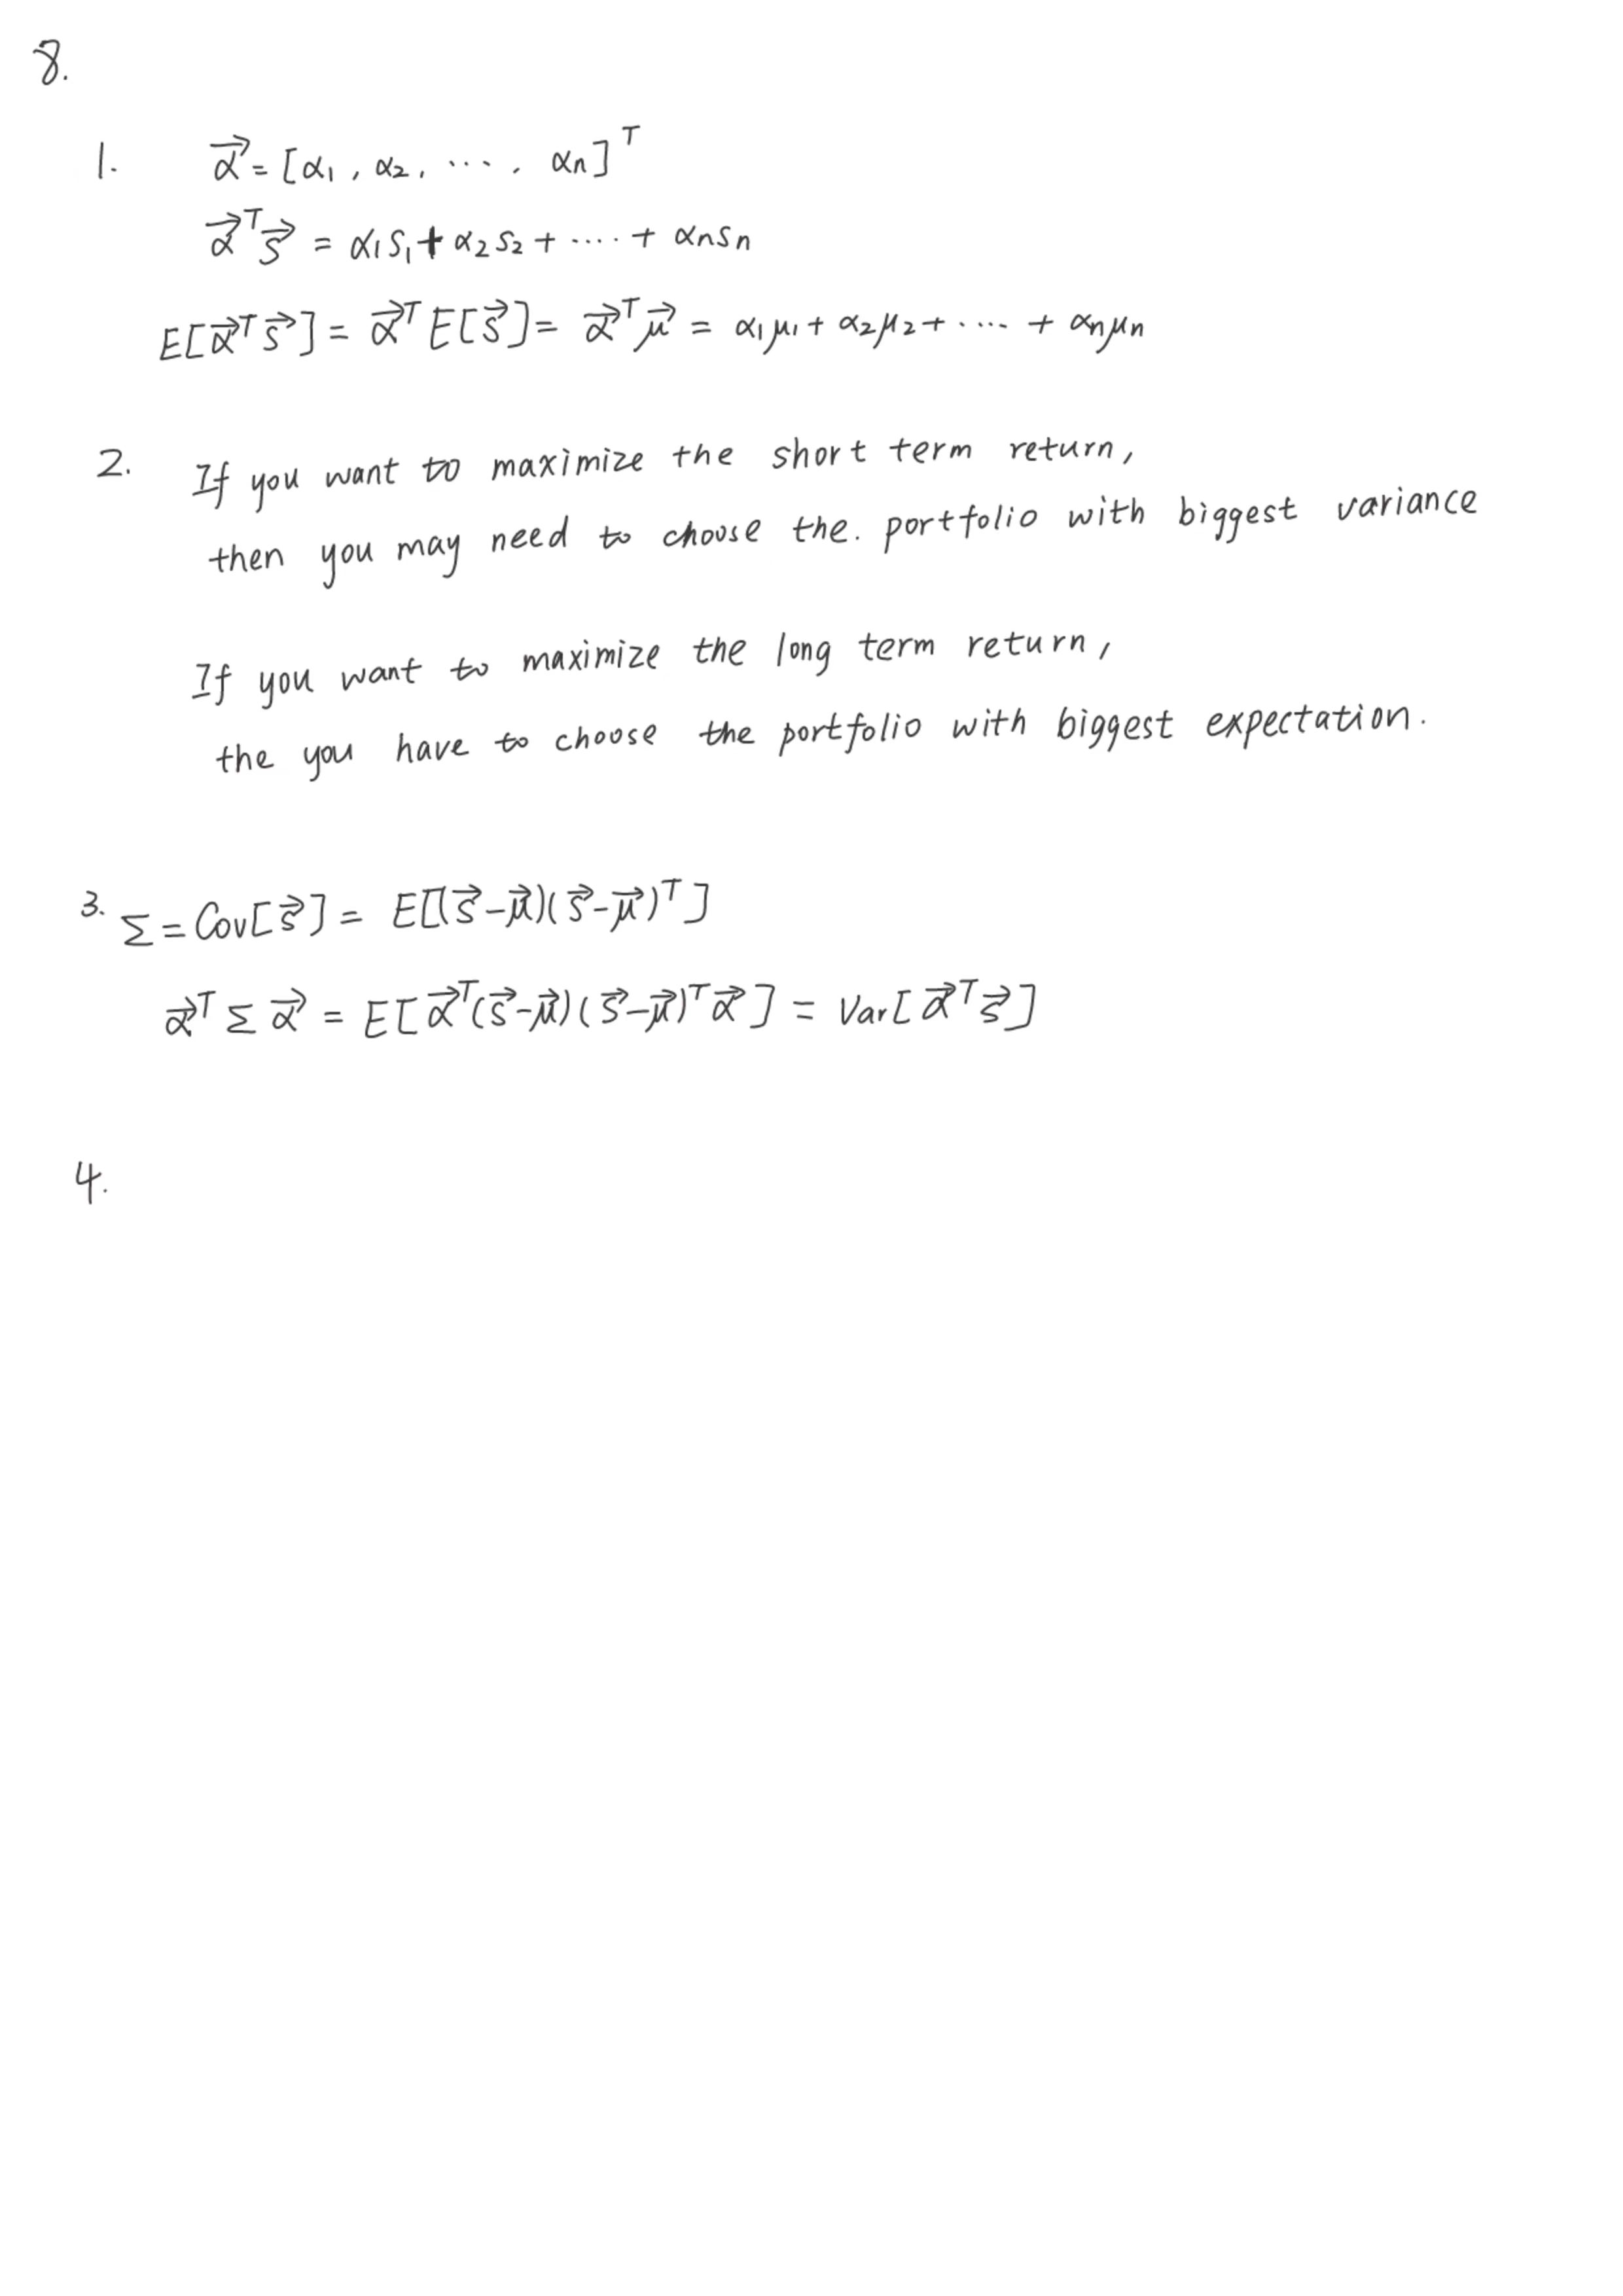 8.
1. α⃗ = [α₁, α₂, ····, αₙ]ᵀ
α⃗ᵀs⃗ = α₁s₁ + α₂s₂ + ···· + αₙsₙ
E[α⃗ᵀs⃗] = α⃗ᵀE[s⃗] = α⃗ᵀμ⃗ = α₁μ₁ + α₂μ₂ + ···· + αₙμₙ
2. If you want to maximize the short term return,
then you may need to choose the. portfolio with biggest variance
If you want to maximize the long term return,
the you have to choose the portfolio with biggest expectation.
3. Σ = Cov[s⃗] = E[(s⃗-μ⃗)(s⃗-μ⃗)ᵀ]
α⃗ᵀ Σ α⃗ = E[α⃗ᵀ(s⃗-μ⃗)(s⃗-μ⃗)ᵀα⃗] = Var[α⃗ᵀs⃗]
4.